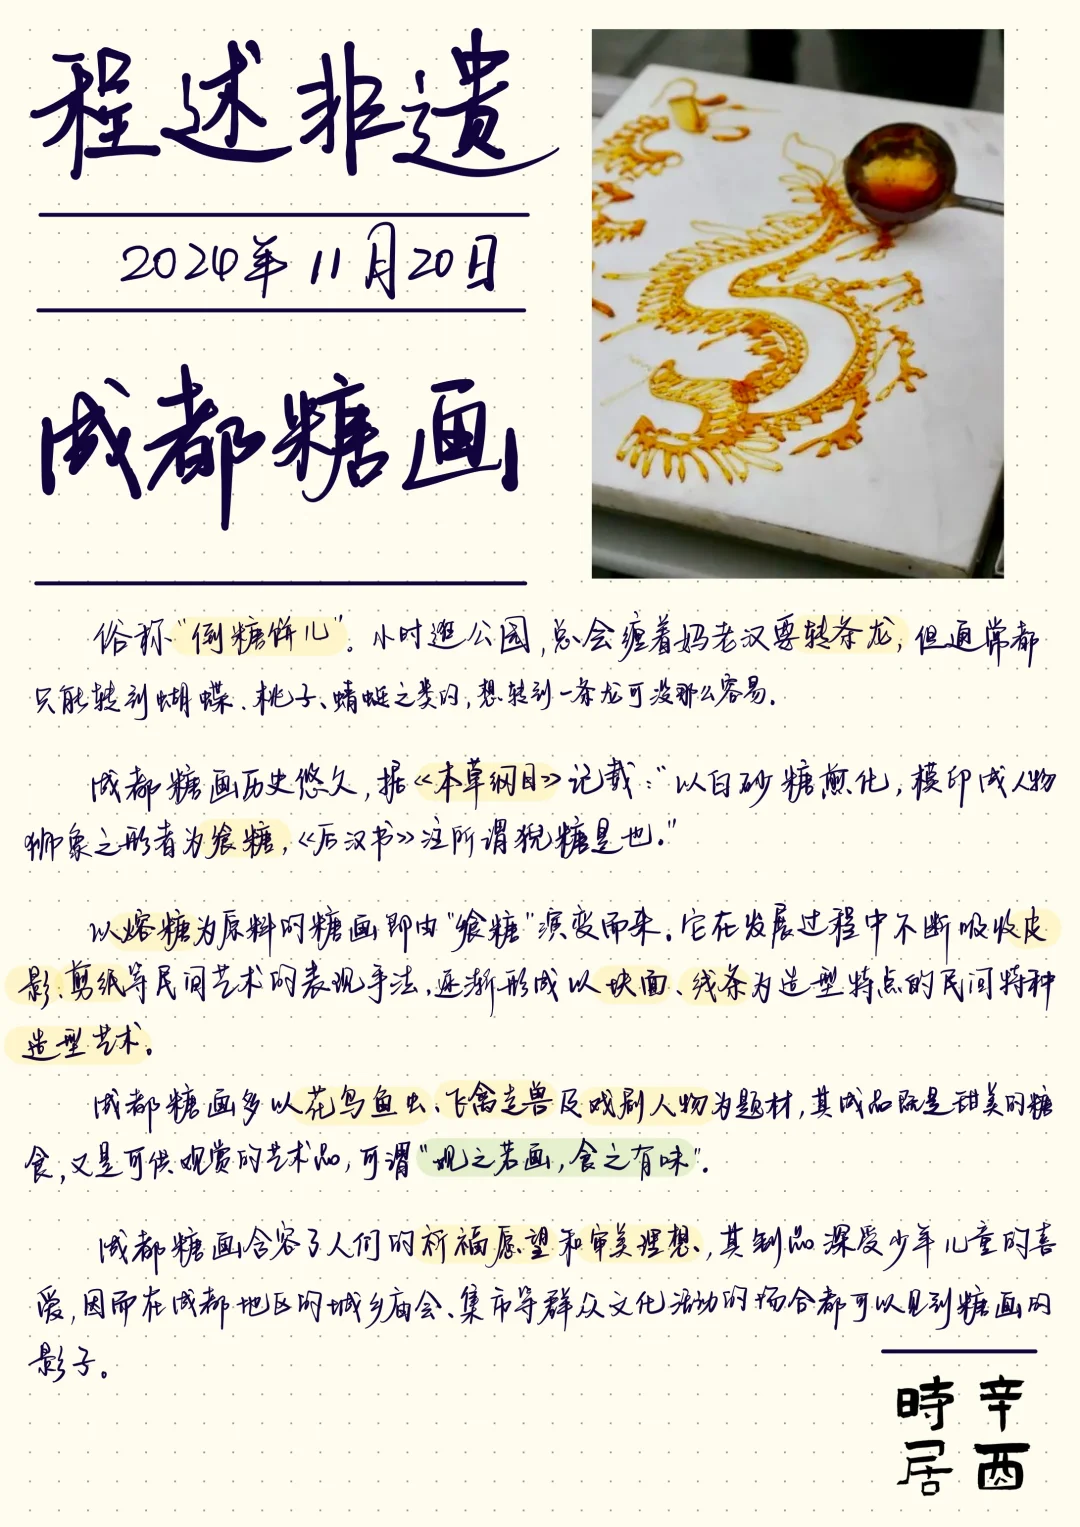 程述非遗
2024年11月20日
成都糖画
俗称“倒糖饼儿”。小时逛公园,总会缠着妈老汉要转条龙,但通常都
只能转到蝴蝶、桃子、蜻蜓之类的,想转到一条龙可没那么容易.
成都糖画历史悠久,据《本草纲目》记载:“以白砂糖煎化,模印成人物
狮象之形者为飨糖,《后汉书》注所谓猊糖是也."
以熔糖为原料的糖画即由"飨糖"演变而来.它在发展过程中不断吸收皮
影、剪纸等民间艺术的表现手法,逐渐形成以块面、线条为造型特点的民间特种
造型艺术。
成都糖画多以花鸟鱼虫、飞禽走兽及戏剧人物为题材,其成品既是甜美的糖
食,又是可供观赏的艺术品,可谓“观之若画,食之有味".
成都糖画含容了人们的祈福愿望和审美理想,其制品深受少年儿童的喜
爱,因而在成都地区的城乡庙会、集市等群众文化活动的场合都可以见到糖画的
影子。
辛酉
時居